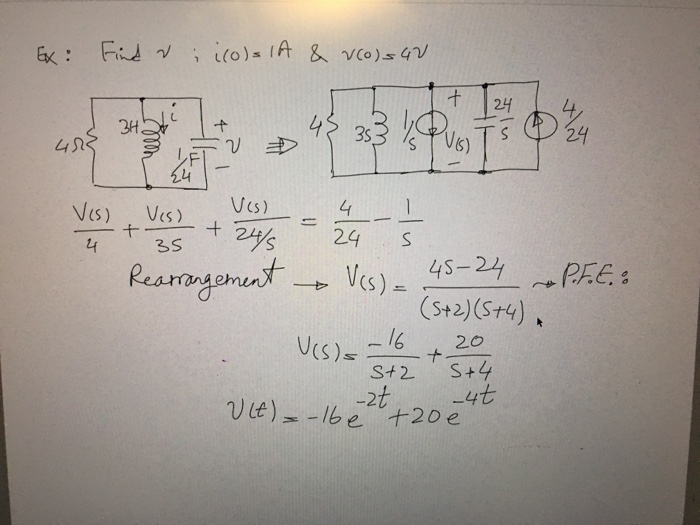 Ex : Find v ; i(0)=1A & v(0)=4V
4Ω 3H i 1/24 F + v - ⇒ 4 3S 1/s + V(s) - 24/s 4/24
V(s)/4 + V(s)/3S + V(s)/24/s = 4/24 - 1/s
Rearrangement → V(s) = 4S-24/(S+2)(S+4) → P.F.E. :
V(s) = -16/S+2 + 20/S+4
V(t) = -16e^-2t + 20e^-4t